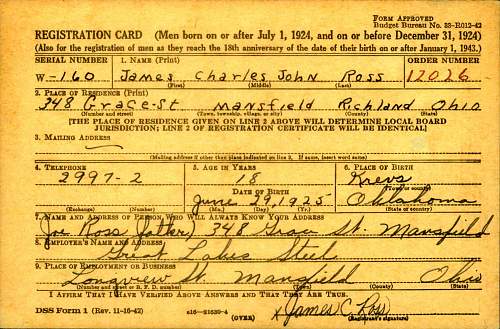 FORM APPROVED
Budget Bureau No. 33-R012-42
REGISTRATION CARD (Men born on or after July 1, 1924, and on or before December 31, 1924)
(Also for the registration of men as they reach the 18th anniversary of the date of their birth on or after January 1, 1943.)
SERIAL NUMBER 1. NAME (Print) ORDER NUMBER
W-160 James Charles John Ross 12026
(First) (Middle) (Last)
2. PLACE OF RESIDENCE (Print)
348 Grace St Mansfield Richland Ohio
(Number and street) (Town, township, village, or city) (County) (State)
[THE PLACE OF RESIDENCE GIVEN ON LINE 2 ABOVE WILL DETERMINE LOCAL BOARD
JURISDICTION; LINE 2 OF REGISTRATION CERTIFICATE WILL BE IDENTICAL]
3. MAILING ADDRESS
[Mailing address if other than place indicated on line 2. If same, insert word same]
4. TELEPHONE 5. AGE IN YEARS 6. PLACE OF BIRTH
2997-2 18 Krevs
(Town or county)
DATE OF BIRTH
June 29, 1925 Oklahoma
(Exchange) (Number) (Mo.) (Day) (Yr.) (State or country)
7. NAME AND ADDRESS OF PERSON WHO WILL ALWAYS KNOW YOUR ADDRESS
Joe Ross (father) 348 Grace St. Mansfield
8. EMPLOYER'S NAME AND ADDRESS
Great Lakes Steel
9. PLACE OF EMPLOYMENT OR BUSINESS
Longview St. Mansfield Ohio
(Number and street or R. F. D. number) (Town) (County) (State)
I AFFIRM THAT I HAVE VERIFIED ABOVE ANSWERS AND THAT THEY ARE TRUE.
DSS Form 1 (Rev. 11-16-42) (OVER) x James C. Ross
(Registrant's signature)